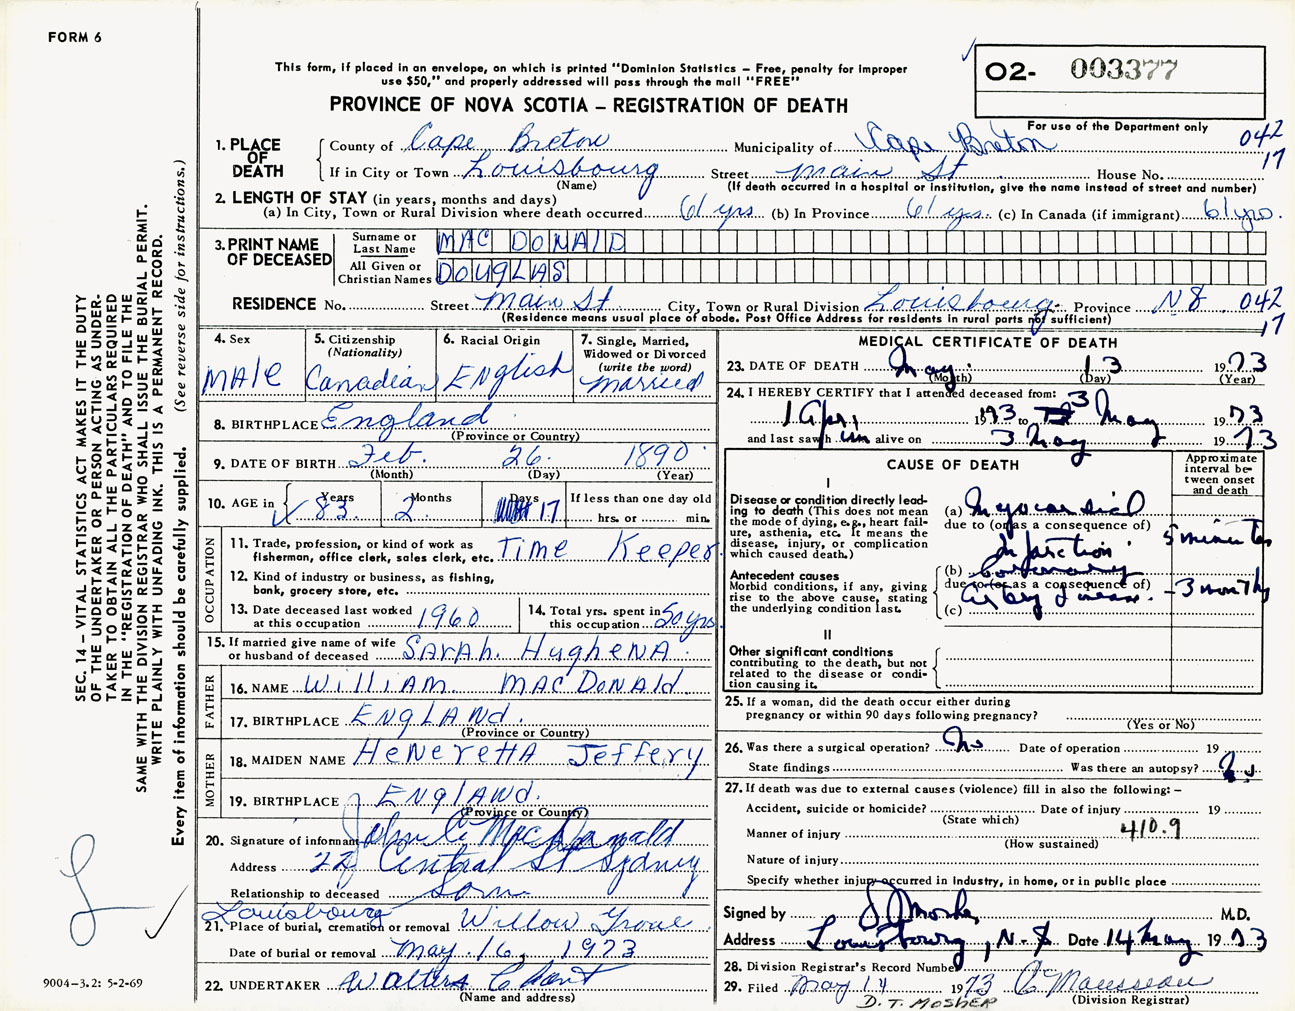 FORM 6
This form, if placed in an envelope, on which is printed "Dominion Statistics – Free, penalty for improper
use $50," and properly addressed will pass through the mail "FREE"
PROVINCE OF NOVA SCOTIA – REGISTRATION OF DEATH
02- 003377
For use of the Department only
SEC. 14 – VITAL STATISTICS ACT MAKES IT THE DUTY
OF THE UNDERTAKER OR PERSON ACTING AS UNDER-
TAKER TO OBTAIN ALL THE PARTICULARS REQUIRED
IN THE "REGISTRATION OF DEATH" AND TO FILE THE
SAME WITH THE DIVISION REGISTRAR WHO SHALL ISSUE THE BURIAL PERMIT.
WRITE PLAINLY WITH UNFADING INK. THIS IS A PERMANENT RECORD.
Every item of information should be carefully supplied. (See reverse side for instructions.)
1. PLACE OF DEATH
County of Cape Breton Municipality of Cape Breton 042
If in City or Town Louisbourg Street Main St House No. 17
(Name) (If death occurred in a hospital or institution, give the name instead of street and number)
2. LENGTH OF STAY (in years, months and days)
(a) In City, Town or Rural Division where death occurred 61 yrs (b) In Province 61 yrs. (c) In Canada (if immigrant) 61 yrs.
3. PRINT NAME OF DECEASED
Surname or Last Name MAC DONALD
All Given or Christian Names DOUGLAS
RESIDENCE No. Street Main St City, Town or Rural Division Louisbourg Province N S 042
(Residence means usual place of abode. Post Office Address for residents in rural parts not sufficient) 17
4. Sex MALE
5. Citizenship (Nationality) Canadian
6. Racial Origin English
7. Single, Married, Widowed or Divorced (write the word) married
8. BIRTHPLACE England
(Province or Country)
9. DATE OF BIRTH Feb. 26 1890
(Month) (Day) (Year)
10. AGE in Years 83 Months 2 Days 17 If less than one day old hrs. or min.
OCCUPATION
11. Trade, profession, or kind of work as fisherman, office clerk, sales clerk, etc. Time Keeper
12. Kind of industry or business, as fishing, bank, grocery store, etc.
13. Date deceased last worked at this occupation 1960
14. Total yrs. spent in this occupation 50 yrs
15. If married give name of wife or husband of deceased SARAH. HUGHENA
FATHER
16. NAME WILLIAM MAC DONALD.
17. BIRTHPLACE ENGLAND.
(Province or Country)
MOTHER
18. MAIDEN NAME HENERETTA JEFFERY
19. BIRTHPLACE ENGLAND.
(Province or Country)
20. Signature of informant John C. MacDonald
Address 22 Central St Sydney
Relationship to deceased Son
21. Place of burial, cremation or removal Louisbourg Willow Grove
Date of burial or removal May 16, 1973
22. UNDERTAKER Walters
(Name and address)
9004–3.2: 5-2-69
MEDICAL CERTIFICATE OF DEATH
23. DATE OF DEATH May 13 1973
(Month) (Day) (Year)
24. I HEREBY CERTIFY that I attended deceased from:
1 Apr, 1973 to 3 May 1973
and last saw him alive on 3 May 1973
CAUSE OF DEATH
Approximate interval between onset and death
I
Disease or condition directly leading to death (This does not mean the mode of dying, e.g., heart failure, asthenia, etc. It means the disease, injury, or complication which caused death.)
(a) Myocardial
due to (or as a consequence of)
Infarction 5 minutes
Antecedent causes
Morbid conditions, if any, giving rise to the above cause, stating the underlying condition last.
(b) Coronary
due to (or as a consequence of)
Artery Disease. – 3 months
(c)
II
Other significant conditions contributing to the death, but not related to the disease or condition causing it.
25. If a woman, did the death occur either during pregnancy or within 90 days following pregnancy?
(Yes or No)
26. Was there a surgical operation? No Date of operation 19
State findings Was there an autopsy? No
27. If death was due to external causes (violence) fill in also the following: –
Accident, suicide or homicide? Date of injury 19
(State which)
Manner of injury 410.9
(How sustained)
Nature of injury
Specify whether injury occurred in industry, in home, or in public place
Signed by D J Mosher M.D.
Address Louisbourg, N.S Date 14 May 1973
28. Division Registrar's Record Number
29. Filed May 14 1973 C Mousseau
(Division Registrar)
D. T. MOSHER